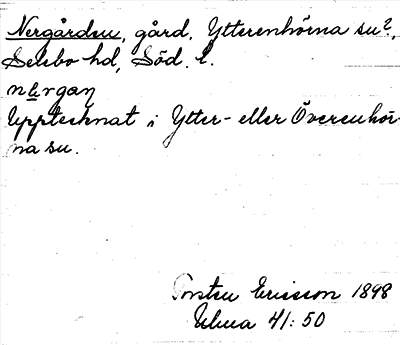 Nergården, gård, Ytterenhörna sn?,
Selebo hd, Söd. l.
nærgaɳ
Upptecknat i Ytter- eller Överenhör-
na sn.
Torsten Ericsson 1898
Ulma 41:50